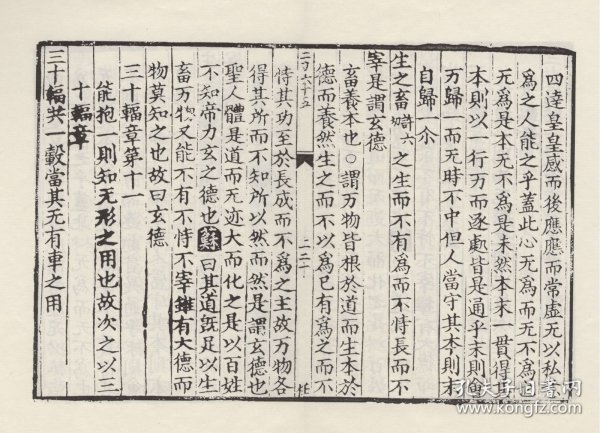 四達皇皇感而後應應而常虛无以私
為之人能之乎蓋此心无為而无不為
无為是本无不為是末然本末一貫得其
本則以一行万而逐處皆是通乎末則會
万歸一而无時不中但人當守其本則末
自歸一尒
生之畜 六 之生而不有為而不恃長而不
宰是謂玄德
畜養本也○謂万物皆根於道而生本於
德而養然生之而不以為己有為之而不
二万六十五
二二十
恃其功至於長成而不為之主故万物各
得其所而不知所以然而然是謂玄德也
聖人體是道而无迹大而化之是以百姓
不知帝力玄之德也蘇曰其道旣足以生
畜万物又能不有不恃不宰雖有大德而
物莫知之也故曰玄德
三十輻章第十一
能抱一則知无形之用也故次之以三
十輻章
三十輻共一轂當其无有車之用
孔夫子旧书网
www.kongfz.com